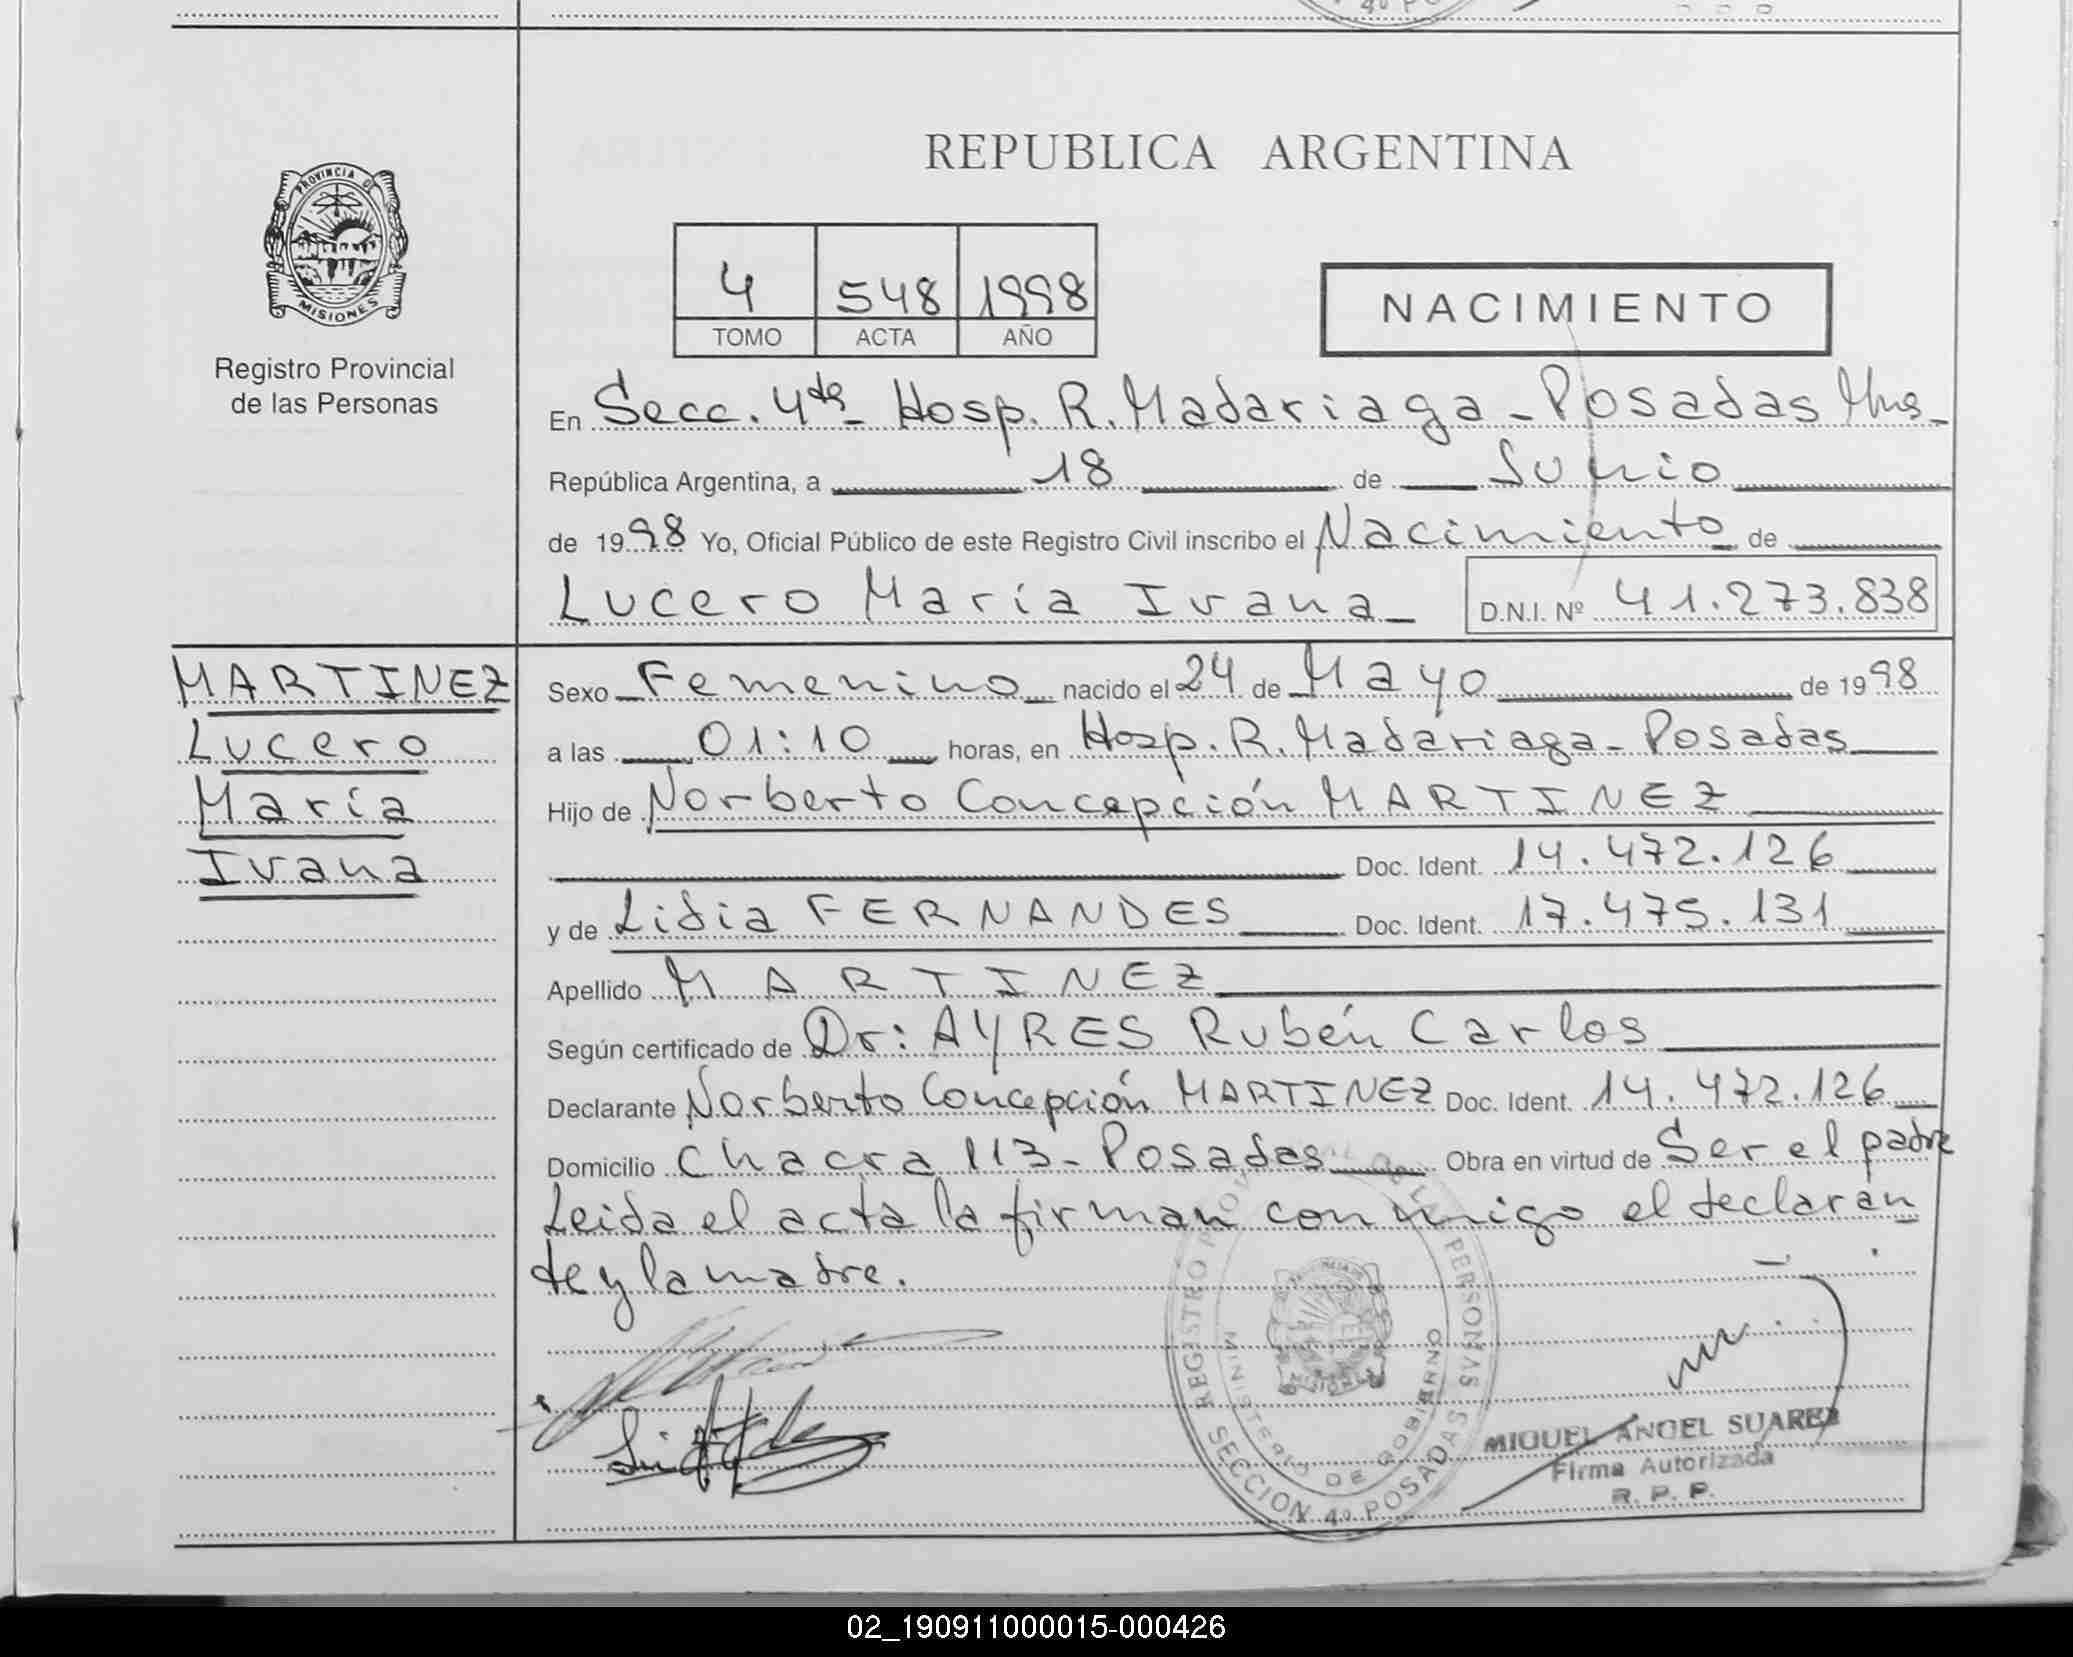 REPUBLICA ARGENTINA
PROVINCIA DE
MISIONES
Registro Provincial
de las Personas
4 548 1998
TOMO ACTA AÑO
NACIMIENTO
En Secc. 4ta - Hosp. R. Madariaga - Posadas Mnes -
República Argentina, a 18 de Junio
de 1998 Yo, Oficial Público de este Registro Civil inscribo el Nacimiento de
Lucero María Ivana D.N.I. Nº 41.273.838
MARTINEZ
Lucero
María
Ivana
Sexo Femenino nacido el 24 de Mayo de 1998
a las 01:10 horas, en Hosp. R. Madariaga - Posadas
Hijo de Norberto Concepción MARTINEZ
Doc. Ident. 14.472.126
y de Lidia FERNANDES Doc. Ident. 17.475.131
Apellido MARTINEZ
Según certificado de Dr: AYRES Rubén Carlos
Declarante Norberto Concepción MARTINEZ Doc. Ident. 14.472.126
Domicilio Chacra 113 - Posadas Obra en virtud de Ser el padre
Leida el acta la firman conmigo el declaran
te y la madre.
REGISTRO PROVINCIAL DE LAS PERSONAS
MINISTERIO DE GOBIERNO
SECCION 4º POSADAS
MIGUEL ANGEL SUAREZ
Firma Autorizada
R. P. P.
02_190911000015-000426